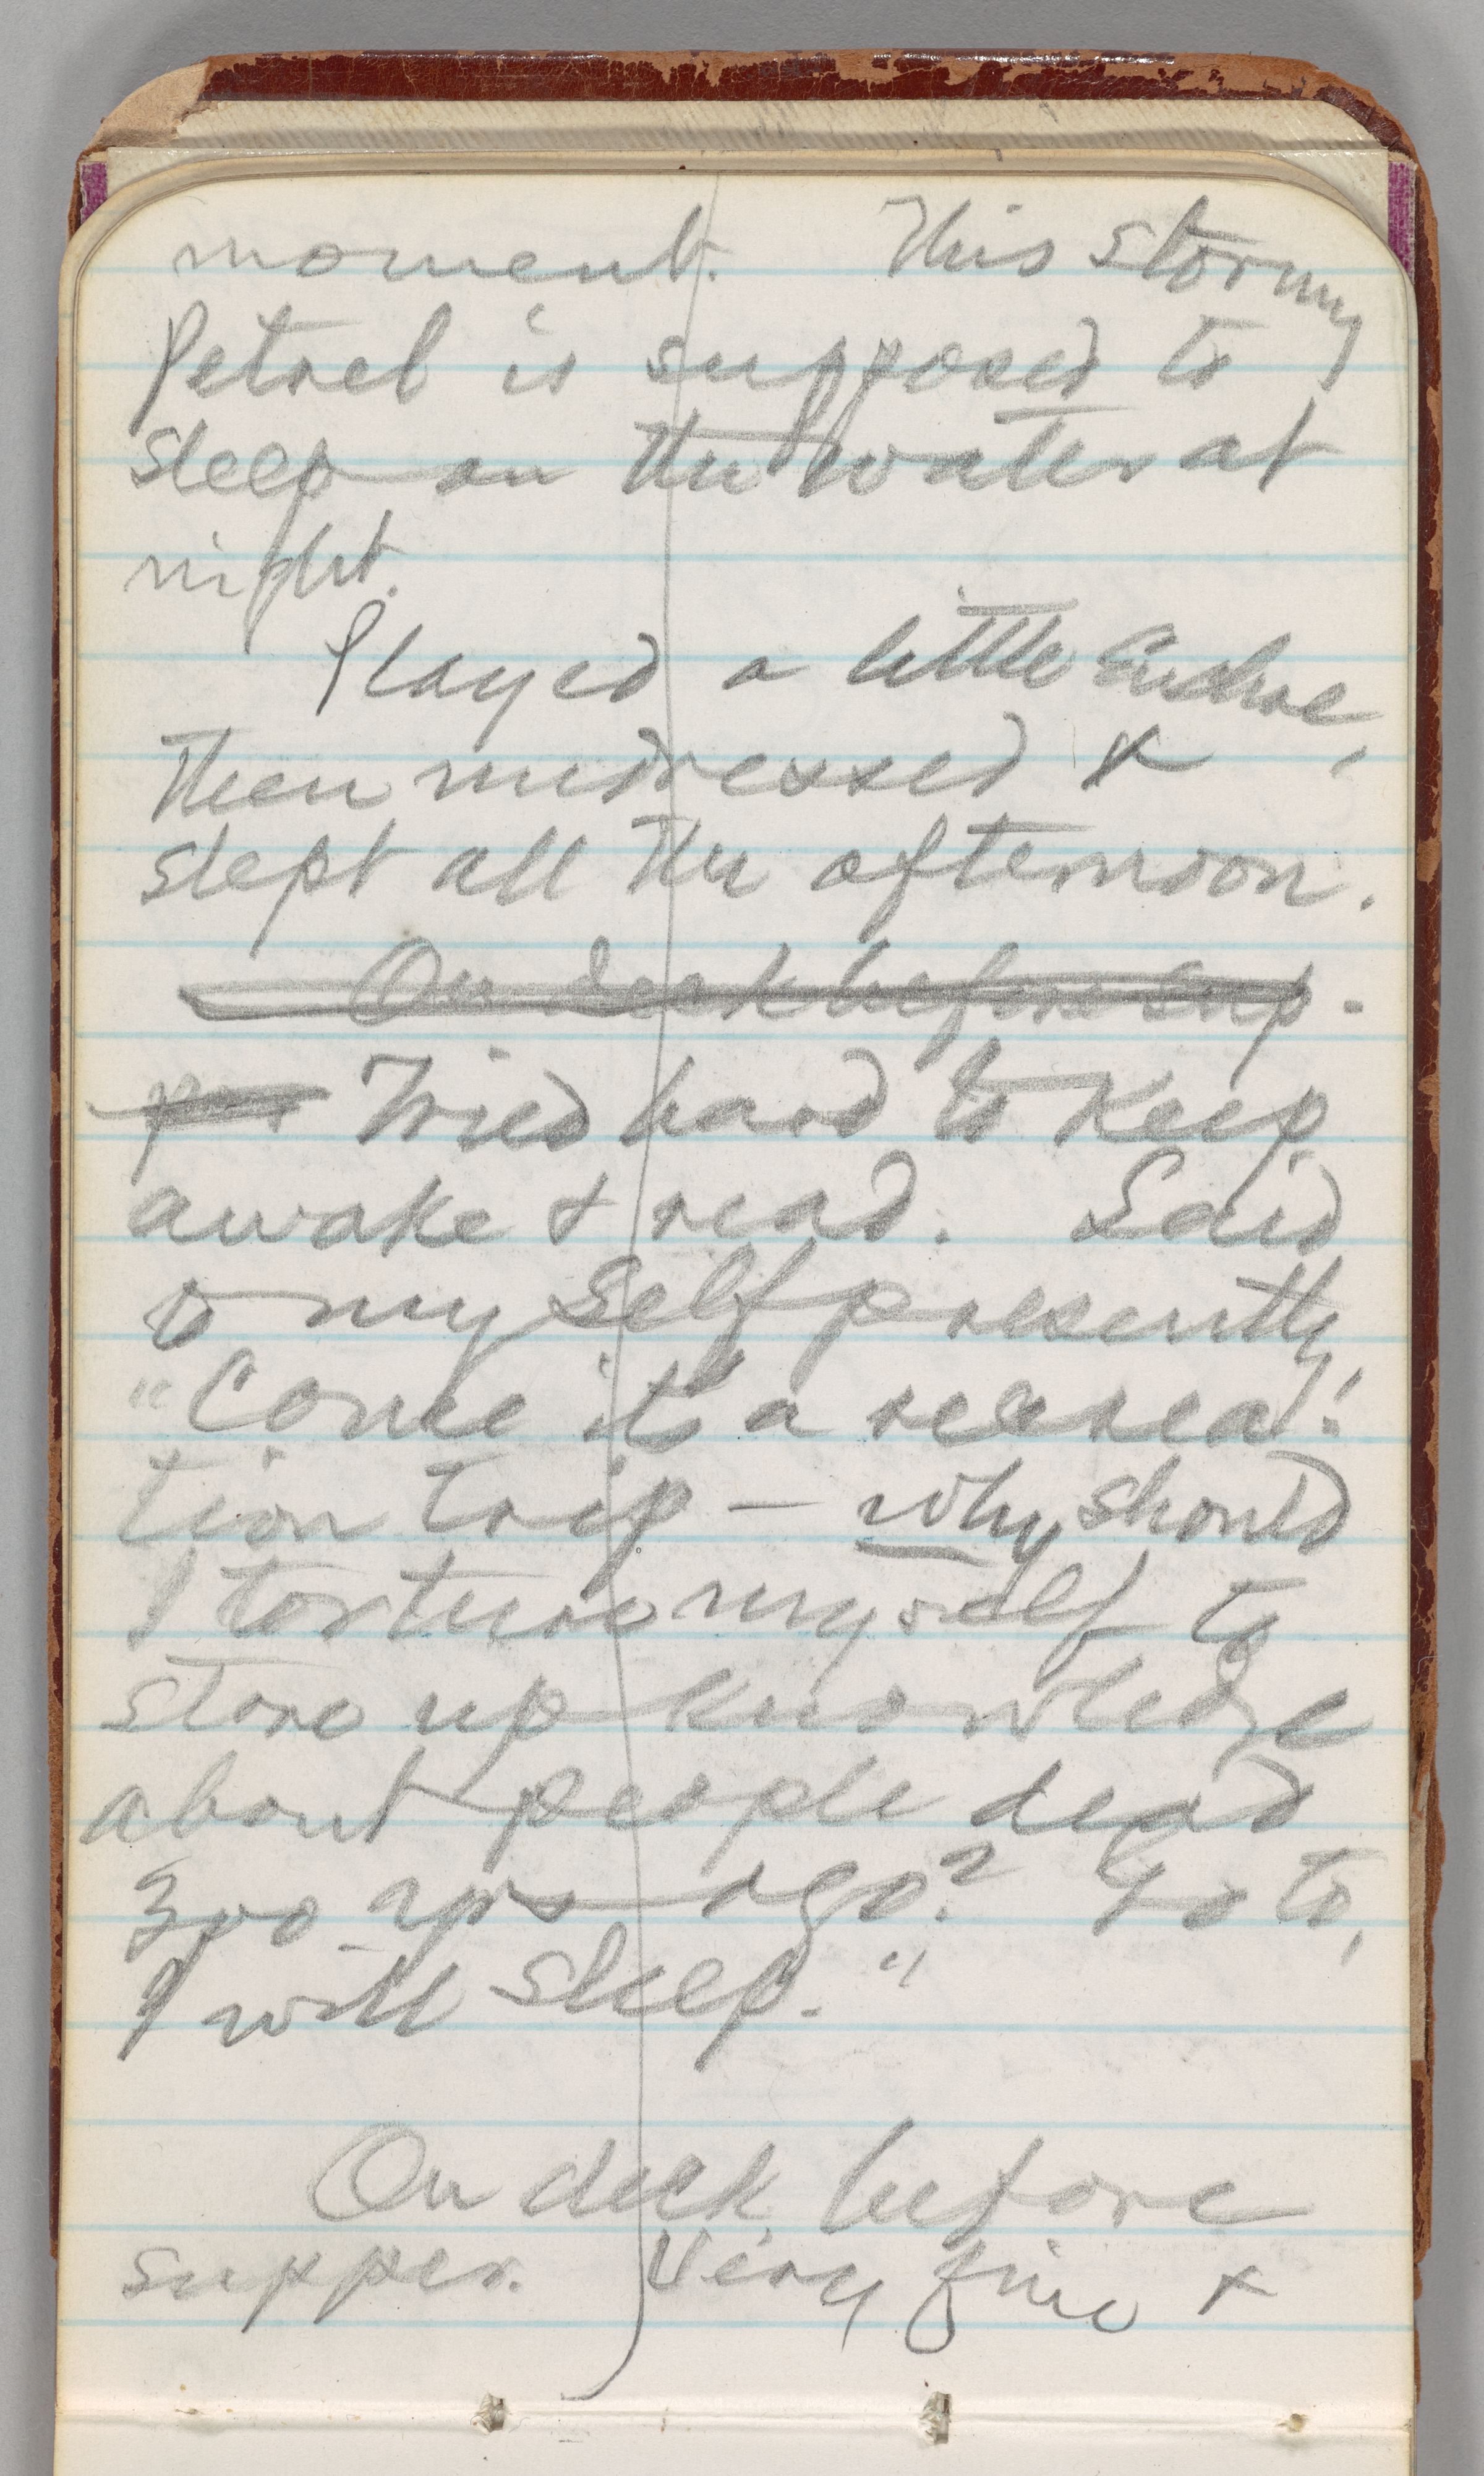 moment. This stormy
Petrel is supposed to
sleep on the water at
night.
Played a little Euchre,
then undressed &
slept all the afternoon.
On deck before sup-
per Tried hard to keep
awake & read. Said
to my self presently
"Come it's a recrea-
tion trip — why should
I torture myself to
store up knowledge
about people dead
300 yrs ago? Go to,
I will sleep."
On deck before
supper. Very fine &